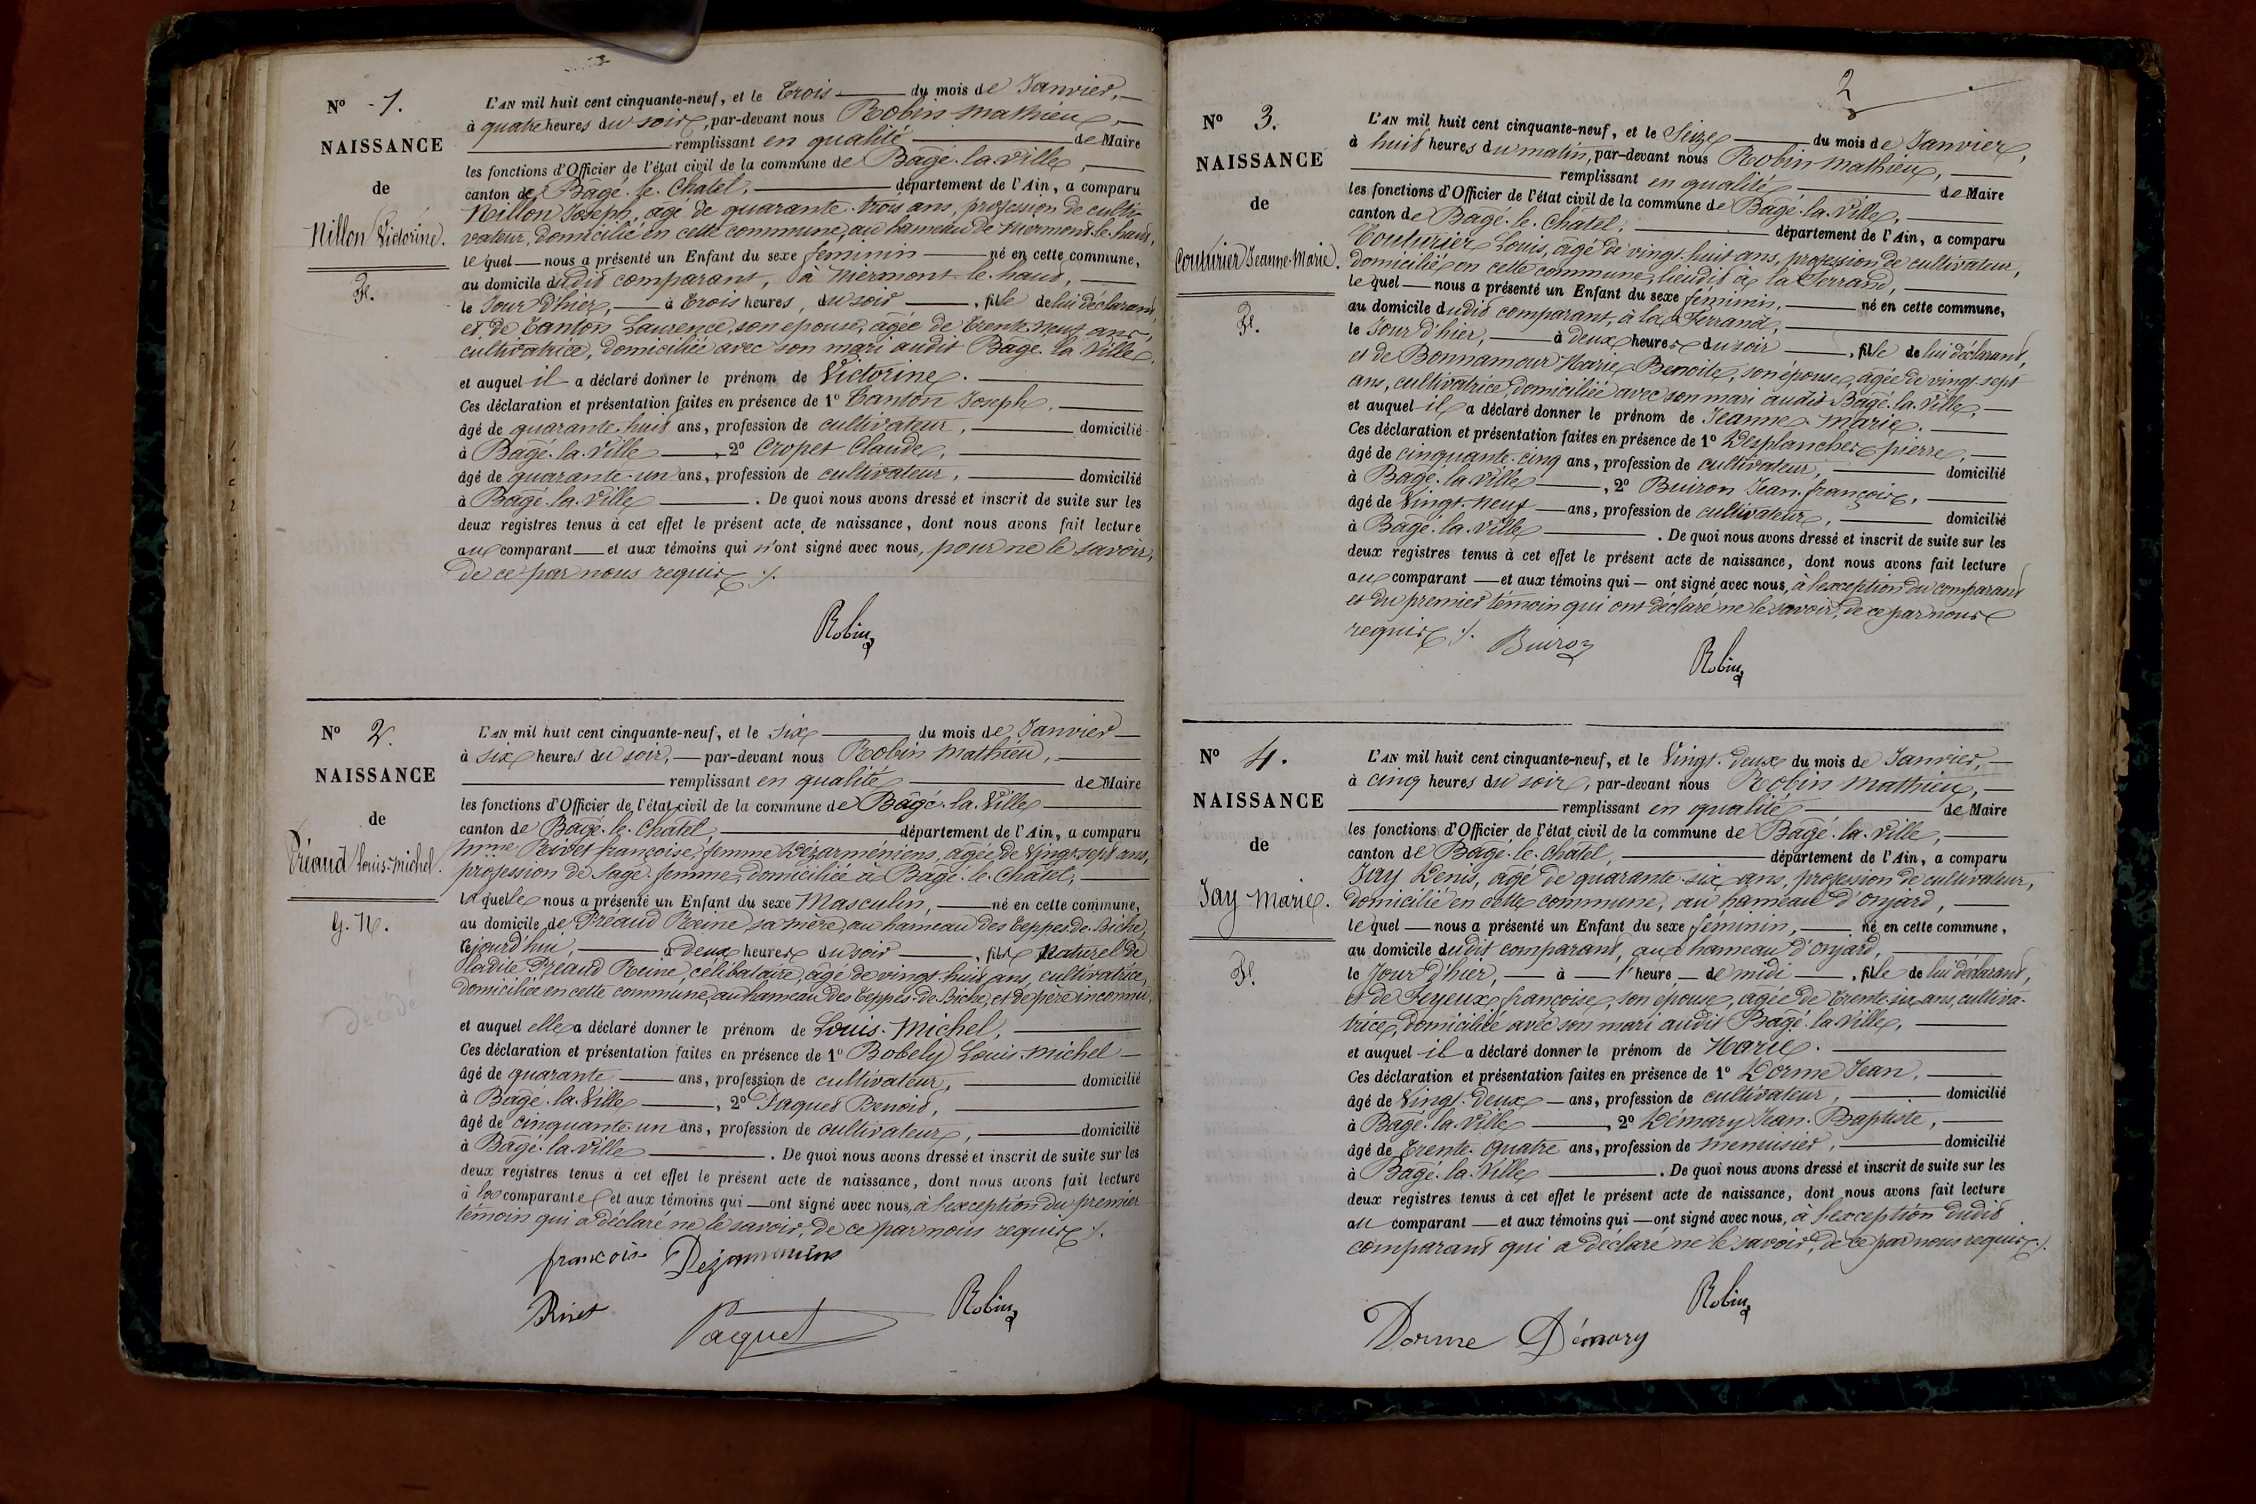 N° 1.
NAISSANCE
de
Nillon Victorine.
F.
L'AN mil huit cent cinquante-neuf, et le Trois du mois de Janvier,
à quatre heures du soir, par-devant nous Robin Mathieu,
remplissant en qualité de Maire
les fonctions d'Officier de l'état civil de la commune de Bâgé-la-Ville,
canton de Bâgé-le-Chatel, département de l'Ain, a comparu
Nillon Joseph, âgé de quarante-trois ans, profession de culti-
vateur, domicilié en cette commune, au hameau de Mermont-le-haut,
lequel nous a présenté un Enfant du sexe féminin né en cette commune,
au domicile dudit comparant, à Mermont-le-haut,
le Jour d'hier, à Trois heures, du soir, fille de lui déclarant,
et de Tanton Laurence, son épouse, âgée de trente-neuf ans,
cultivatrice, domiciliée avec son mari audit Bâgé-la-Ville,
et auquel il a déclaré donner le prénom de Victorine.
Ces déclaration et présentation faites en présence de 1° Tanton Joseph,
âgé de quarante-huit ans, profession de cultivateur, domicilié
à Bâgé-la-Ville, 2° Cropet Claude,
âgé de quarante-un ans, profession de cultivateur, domicilié
à Bâgé-la-Ville. De quoi nous avons dressé et inscrit de suite sur les
deux registres tenus à cet effet le présent acte de naissance, dont nous avons fait lecture
au comparant et aux témoins qui n'ont signé avec nous, pour ne le savoir,
de ce par nous requis ./.
Robin
N° 2.
NAISSANCE
de
Préaud Louis-Michel.
G. N.
décédé
L'AN mil huit cent cinquante-neuf, et le six du mois de Janvier
à six heures du soir, par-devant nous Robin Mathieu,
remplissant en qualité de Maire
les fonctions d'Officier de l'état civil de la commune de Bâgé-la-Ville
canton de Bâgé-le-Chatel, département de l'Ain, a comparu
Mme Rivet françoise, femme Dezarméniens, âgée de vingt-sept ans,
profession de Sage-femme, domiciliée à Bâgé-le-Chatel,
laquelle nous a présenté un Enfant du sexe Masculin, né en cette commune,
au domicile de Préaud Reine sa mère, au hameau des Teppes-de-Biche,
cejourd'hui, à deux heures du soir, fils Naturel de
ladite Préaud Reine, célibataire, âgé de vingt-huit ans, cultivatrice,
domiciliée en cette commune, au hameau des Teppes-de-Biche, et de père inconnu,
et auquel elle a déclaré donner le prénom de Louis-Michel,
Ces déclaration et présentation faites en présence de 1° Bobely Louis-Michel
âgé de quarante ans, profession de cultivateur, domicilié
à Bâgé-la-Ville, 2° Paquet Benoit,
âgé de cinquante-un ans, profession de cultivateur, domicilié
à Bâgé-la-Ville. De quoi nous avons dressé et inscrit de suite sur les
deux registres tenus à cet effet le présent acte de naissance, dont nous avons fait lecture
à la comparante et aux témoins qui ont signé avec nous, à l'exception du premier
témoin qui a déclaré ne le savoir, de ce par nous requis ./.
francoise
Rivet Paquet Robin
2
N° 3.
NAISSANCE
de
Couturier Jeanne-Marie.
F.
L'AN mil huit cent cinquante-neuf, et le Seize du mois de Janvier,
à huit heures du matin, par-devant nous Robin Mathieu,
remplissant en qualité de Maire
les fonctions d'Officier de l'état civil de la commune de Bâgé-la-Ville,
canton de Bâgé-le-Chatel, département de l'Ain, a comparu
Couturier Louis, âgé de vingt-huit ans, profession de cultivateur,
domicilié en cette commune, lieudit à la Ferrand,
lequel nous a présenté un Enfant du sexe féminin, né en cette commune,
au domicile dudit comparant, à la Ferrand,
le Jour d'hier, à deux heures du soir, fille de lui déclarant,
et de Bonnamour Marie Benoite, son épouse, âgée de vingt-sept
ans, cultivatrice, domiciliée avec son mari audit Bâgé-la-Ville,
et auquel il a déclaré donner le prénom de Jeanne-Marie.
Ces déclaration et présentation faites en présence de 1° Desplanches pierre,
âgé de cinquante-cinq ans, profession de cultivateur, domicilié
à Bâgé-la-Ville, 2° Buiron Jean-françois,
âgé de vingt-neuf ans, profession de cultivateur, domicilié
à Bâgé-la-Ville. De quoi nous avons dressé et inscrit de suite sur les
deux registres tenus à cet effet le présent acte de naissance, dont nous avons fait lecture
au comparant et aux témoins qui ont signé avec nous, à l'exception du comparant
et du premier témoin qui ont déclaré ne le savoir, de ce par nous
requis ./. Buiron
Robin
N° 4.
NAISSANCE
de
Jay Marie.
F.
L'AN mil huit cent cinquante-neuf, et le Vingt-deux du mois de Janvier,
à cinq heures du soir, par-devant nous Robin Mathieu,
remplissant en qualité de Maire
les fonctions d'Officier de l'état civil de la commune de Bâgé-la-Ville,
canton de Bâgé-le-Chatel, département de l'Ain, a comparu
Jay Denis, âgé de quarante-six ans, profession de cultivateur,
domicilié en cette commune, au hameau d'Onjard,
lequel nous a présenté un Enfant du sexe féminin, né en cette commune,
au domicile dudit comparant, aux hameau d'onjard,
le Jour d'hier, à 1 heure de midi, fille de lui déclarant,
et de Feyeux françoise, son épouse, âgée de trente-six ans, cultiva-
trice, domiciliée avec son mari audit Bâgé-la-Ville,
et auquel il a déclaré donner le prénom de Marie.
Ces déclaration et présentation faites en présence de 1° Dorme Jean,
âgé de Vingt-deux ans, profession de cultivateur, domicilié
à Bâgé-la-Ville, 2° Démary Jean-Baptiste,
âgé de Trente-quatre ans, profession de menuisier, domicilié
à Bâgé-la-Ville. De quoi nous avons dressé et inscrit de suite sur les
deux registres tenus à cet effet le présent acte de naissance, dont nous avons fait lecture
au comparant et aux témoins qui ont signé avec nous, à l'exception dudit
comparant qui a déclaré ne le savoir, de ce par nous requis ./.
Robin
Dorme Démary